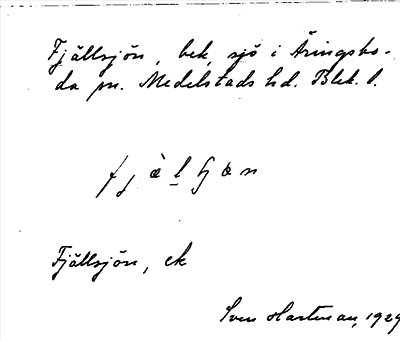 Fjällsjön, bek. sjö i Äringsbo-
da sn. Medelstads hd. Blek. l.
fjälʃjön
Fjällsjön, ek
Sven Hartman, 1929